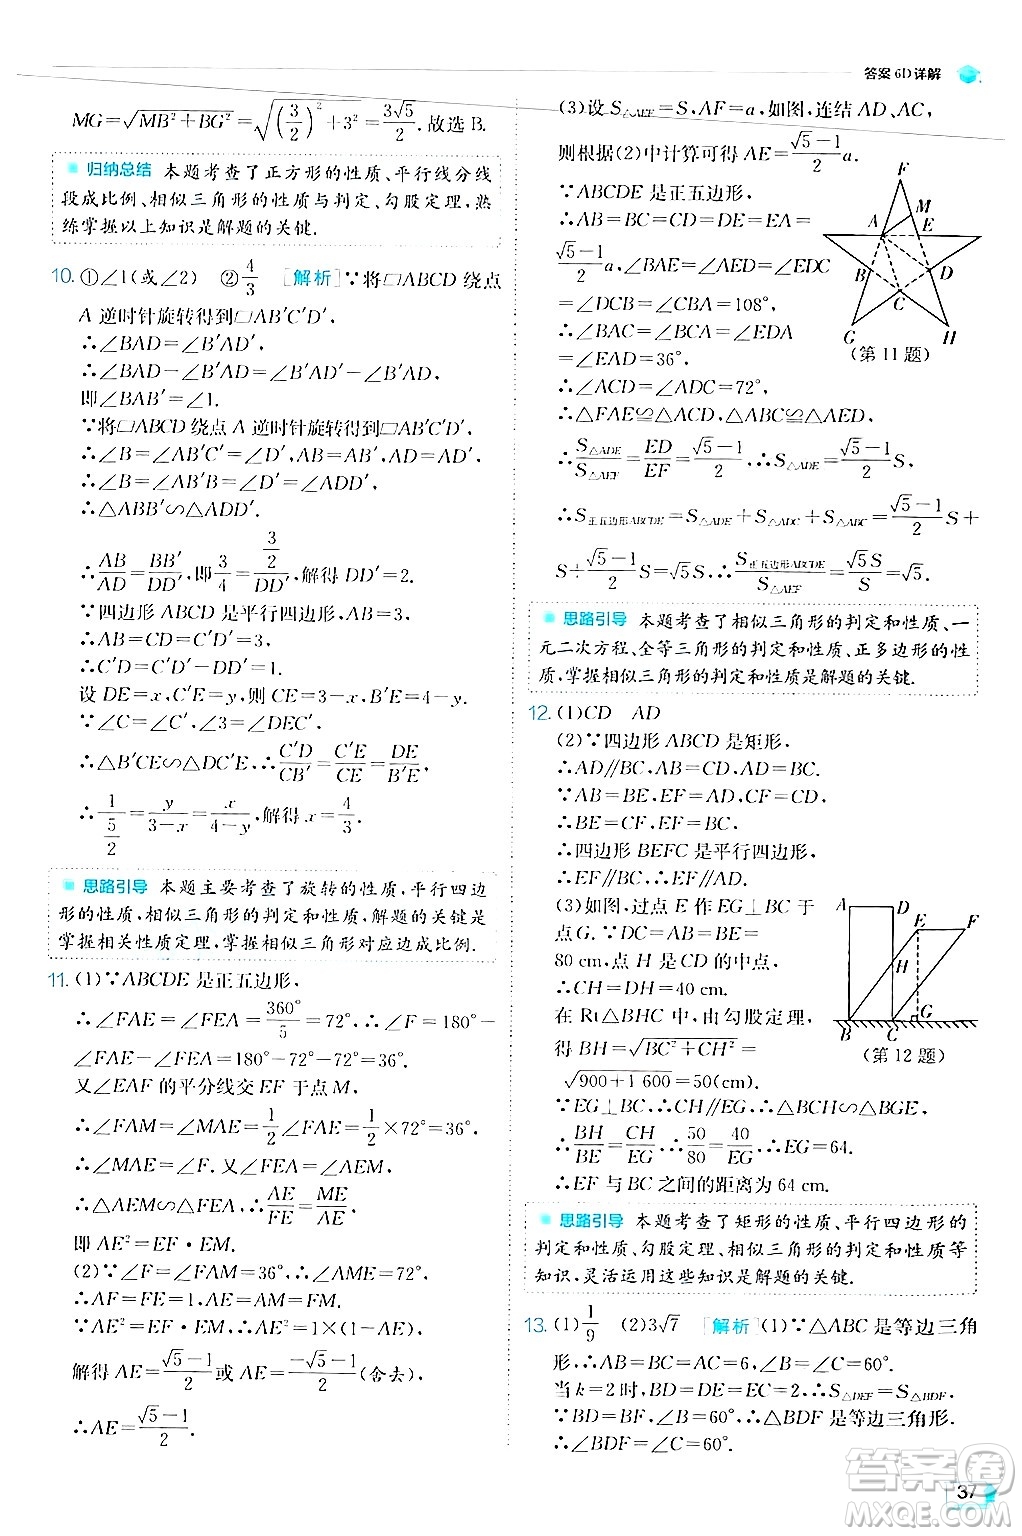 答案 6D 详解
MG=√(MB²+BG²)=√((3/2)²+3²)=3√5/2.故选 B.
归纳总结 本题考查了正方形的性质、平行线分线
段成比例、相似三角形的性质与判定、勾股定理，熟
练掌握以上知识是解题的关键.
10. ①∠1(或∠2) ②4/3 [解析]∵将▱ABCD 绕点
A 逆时针旋转得到▱AB′C′D′,
∴∠BAD=∠B′AD′,
∴∠BAD−∠B′AD=∠B′AD′−∠B′AD,
即∠BAB′=∠1.
∵将▱ABCD 绕点 A 逆时针旋转得到▱AB′C′D′,
∴∠B=∠AB′C′=∠D′,AB=AB′,AD=AD′,
∴∠B=∠AB′B=∠ADD′=∠D′,
∴△ABB′∽△ADD′,
∴AB/AD=BB′/DD′,即3/4=(3/2)/DD′,解得 DD′=2.
∵四边形 ABCD 是平行四边形,AB=3,
∴AB=CD=C′D′=3,
∴C′D=C′D′−DD′=1.
设 DE=x,C′E=y,则 CE=3−x,B′E=4−y.
∵∠C=∠C′,∠3=∠DEC′,
∴△B′CE∽△DC′E,∴C′D/CB′=C′E/CE=DE/B′E,
∴1/(5/2)=y/(3−x)=x/(4−y),解得 x=4/3.
思路引导 本题主要考查了旋转的性质,平行四边
形的性质,相似三角形的判定和性质,解题的关键是
掌握相关性质定理,掌握相似三角形对应边成比例.
11. (1)∵ABCDE 是正五边形,
∴∠FAE=∠FEA=360°/5=72°,∴∠F=180°−
∠FAE−∠FEA=180°−72°−72°=36°.
又∠EAF 的平分线交 EF 于点 M,
∴∠FAM=∠MAE=1/2∠FAE=1/2×72°=36°,
∴∠MAE=∠F.又∠FEA=∠AEM,
∴△AEM∽△FEA,∴AE/FE=ME/AE,
即 AE²=EF·EM.
(2)∵∠F=∠FAM=36°,∠AME=72°,
∴AF=FE=1,AE=AM=FM.
∵AE²=EF·EM,∴AE²=1×(1−AE),
解得 AE=(√5−1)/2或 AE=(−√5−1)/2(舍去),
∴AE=(√5−1)/2.
(3)设 S△AEF=S,AF=a,如图,连结 AD、AC,
则根据(2)中计算可得 AE=(√5−1)/2 a.
∵ABCDE 是正五边形,
∴AB=BC=CD=DE=EA=
(√5−1)/2 a,∠BAE=∠AED=∠EDC
=∠DCB=∠ABC=108°,
∴∠BAC=∠BCA=∠EDA
=∠EAD=36°,
∴∠ACD=∠ADC=72°,
∴△FAE≌△ACD,△ABC≌△AED,
∴S△ADE/S△AEF=ED/EF=(√5−1)/2,∴S△ADE=(√5−1)/2 S,
∴S正五边形ABCDE=S△ADE+S△ADC+S△ABC=(√5−1)/2 S+
S+(√5−1)/2 S=√5S,∴S正五边形ABCDE/S△AEF=√5S/S=√5.
F
A
M
E
B
D
C
G
H
(第 11 题)
思路引导 本题考查了相似三角形的判定和性质、一
元二次方程、全等三角形的判定和性质、正多边形的性
质,掌握相似三角形的判定和性质是解题的关键.
12. (1)CD AD
(2)∵四边形 ABCD 是矩形,
∴AD∥BC,AD=BC.
∵AB=BE,EF=AD,AB=CF,
∴BE=CF,EF=BC,
∴四边形 BEFC 是平行四边形,
∴EF∥BC,∴EF∥AD.
(3)如图,过点 E 作 EG⊥BC 于
点 G.∵CD=AB=BE=
80 cm,点 H 是 CD 的中点,
∴CH=DH=40 cm.
在 Rt△BHC 中,由勾股定理,
得 BH=√(BC²+CH²)=
√(900+1 600)=50(cm).
∵EG⊥BC,∴CH∥EG,∴△BCH∽△BGE,
∴BH/BE=CH/EG,∴50/80=40/EG,∴EG=64,
∴EF 与 BC 之间的距离为 64 cm.
A
D
E
F
H
B
C
G
(第 12 题)
思路引导 本题考查了矩形的性质、平行四边形的
判定和性质、勾股定理、相似三角形的判定和性质等
知识,灵活运用这些知识是解题的关键.
13. (1)1/9 (2)3√7 [解析](1)∵△ABC 是等边三角
形,∴AB=BC=AC=6,∠B=∠C=60°.
当 k=2 时,BD=DE=EC=2,S△DEF=S△BDF.
∵BD=BF,∠B=60°,∴△BDF 是等边三角形.
∴∠BDF=∠C=60°.
37
答案圈
MXQE.COM